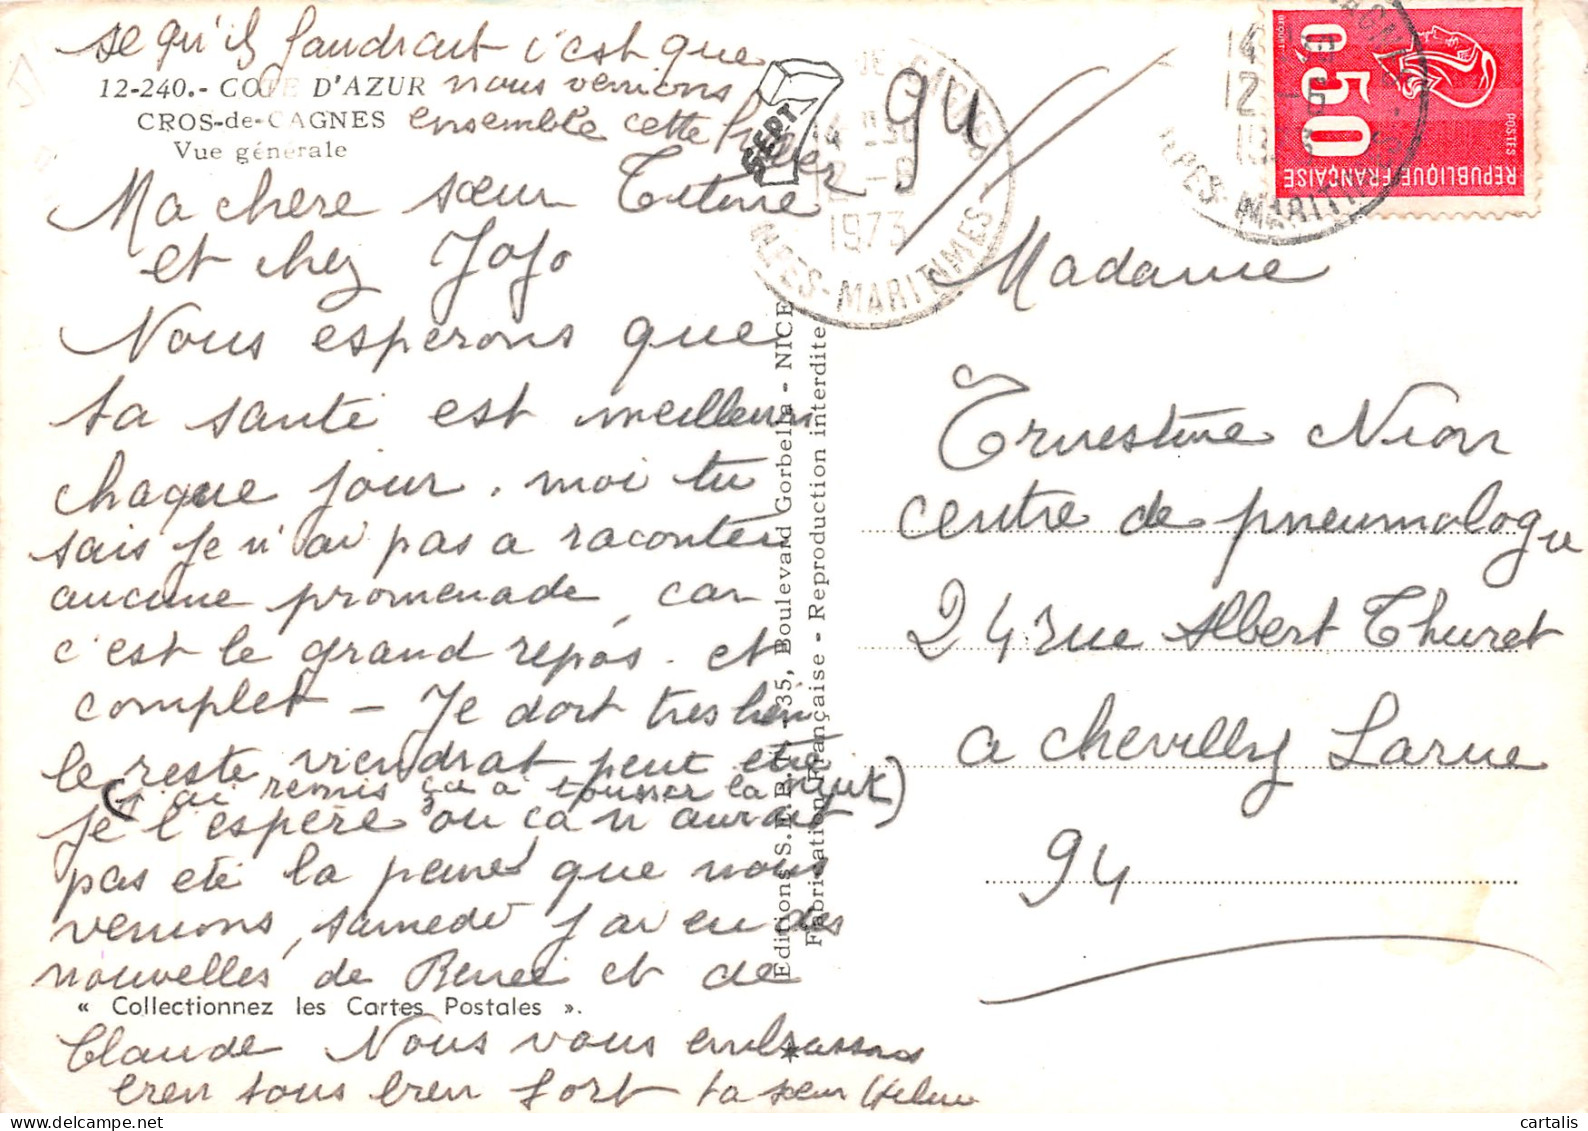 se qu'il faudrait c'est que
12-240.- COTE D'AZUR nous venions
CROS-de-CAGNES ensemble cette hiver
Vue générale
Ma chere sœur Titine
et chez Jojo
Nous esperons que
ta santé est meilleure
chaque jour. moi tu
sais je n'ai pas a raconter
aucune promenade car
c'est le grand repos. et
complet - Je dort tres bien
le reste viendrat peut etre
(j'ai remis ça a tousser la nuit)
je l'espère ou ça n'aurait
pas eté la peine que nous
venions, samedi j'ai eu des
nouvelles de Renée et de
« Collectionnez les Cartes Postales ».
Claude Nous vous embrassons
bien tous bien fort ta sœur Helene
Editions S.E.P.T. - 35, Boulevard Gorbella - NICE
Fabrication Française - Reproduction interdite
SEPT
14 H 30
12 - 6
1973
ALPES-MARITIMES
94
14 H 30
12 - 6
1973
ALPES-MARITIMES
0.50
POSTES
REPUBLIQUE FRANÇAISE
BEQUET
Madame
Ernestine Nion
centre de pneumologie
24 rue Albert Thuret
a Chevilly Larue
94